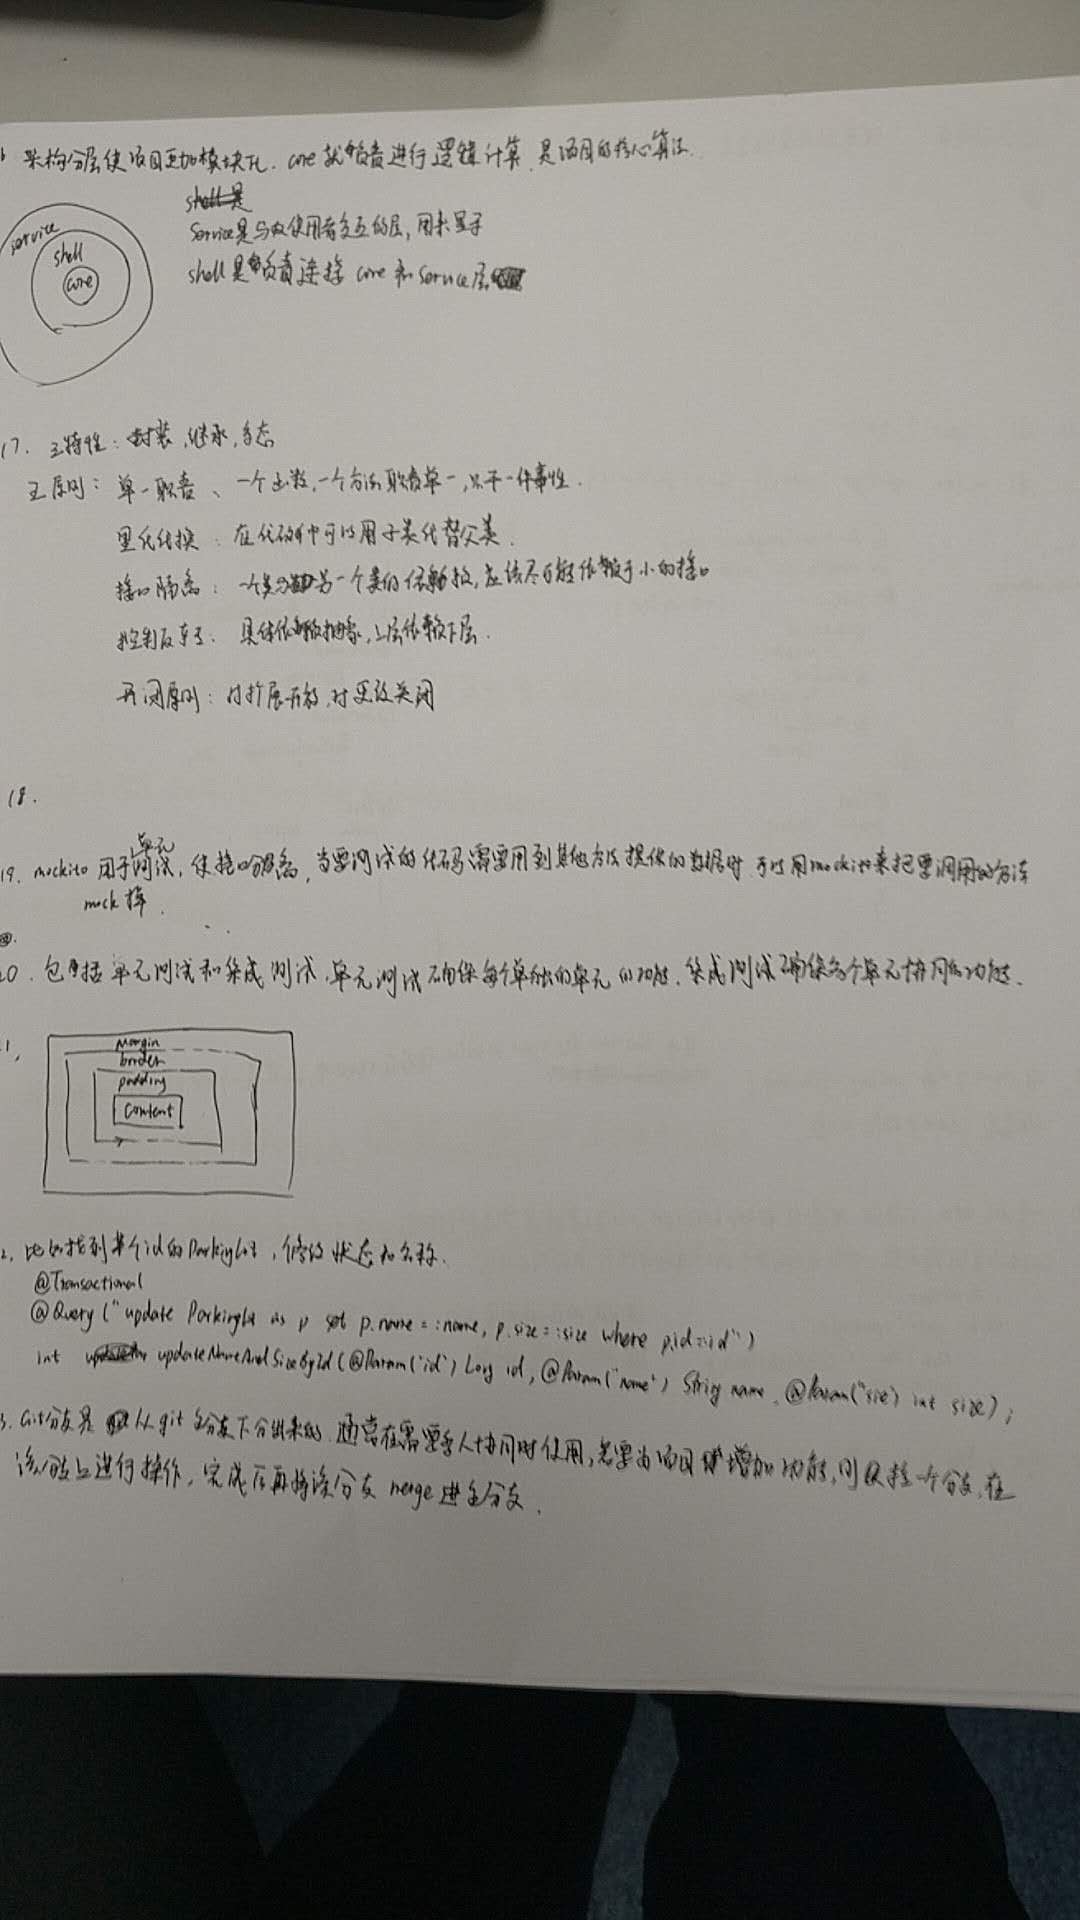 架构分层使项目更加模块化. core 就负责进行逻辑计算, 是项目的核心算法.
shell是
service
Service是与使用者交互的层, 用来显示
shell
shell是负责连接 core 和 service层
core
17. 三特性: 封装, 继承, 多态
五原则: 单一职责、一个函数, 一个方法职责单一, 只干一件事性.
里氏代换: 在代码中可以用子类代替父类.
接口隔离: 一个类另一个类的依赖, 应该尽可能依赖于小的接口
控制反转: 具体依赖抽象, 上层依赖下层.
开闭原则: 对扩展开放, 对更改关闭
18.
单元
19. mockito 用于测试, 使接口分离, 当要测试的代码需要用到其他方法提供的数据时 可以用mockito来把要调用的方法
mock 掉.
20. 包括单元测试和集成测试, 单元测试确保每个单独的单元的功能. 集成测试确保各个单元协同的功能.
1,
margin
border
padding
content
2, 比如找到某个id的ParkingLot, 修改状态和名称.
@Transactional
@Query ("update ParkingLot as p set p.name = :name, p.size = :size where p.id=:id")
int updateNameAndSizeById (@Param('id') Long id, @Param('name') String name, @Param("size) int size);
3. Git分支是从git主分支下分出来的. 通常在需要多人协同时使用, 若要为项目增加功能, 则 一个分支, 在
该分支上进行操作, 完成后再将该分支 merge 进主分支.